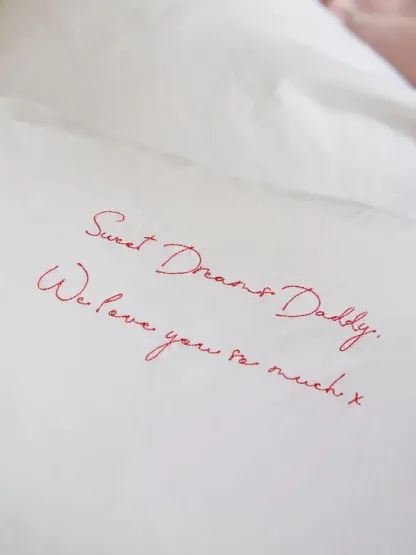 Sweet Dreams Daddy,
We love you so much x